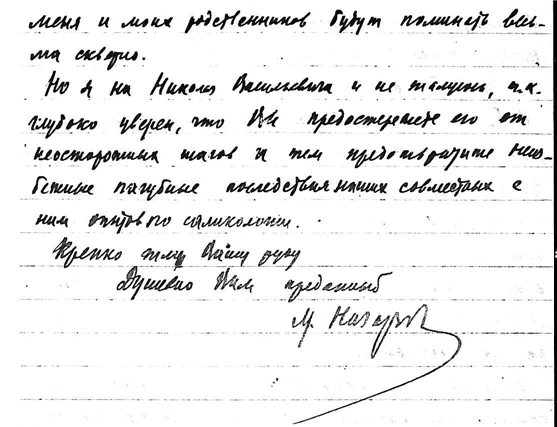 меня и моих родственников будут поминать весь-
ма скверно.
Но я на Николая Васильевича и не, т.к.
глубоко уверен, что Вы предостережете его от
неосторожных шагов и тем предотвратите неиз-
бежные пагубные последствия наших совместных с
ним опытов по
Крепко жму Вашу руку
Душевно Вам преданный
М.